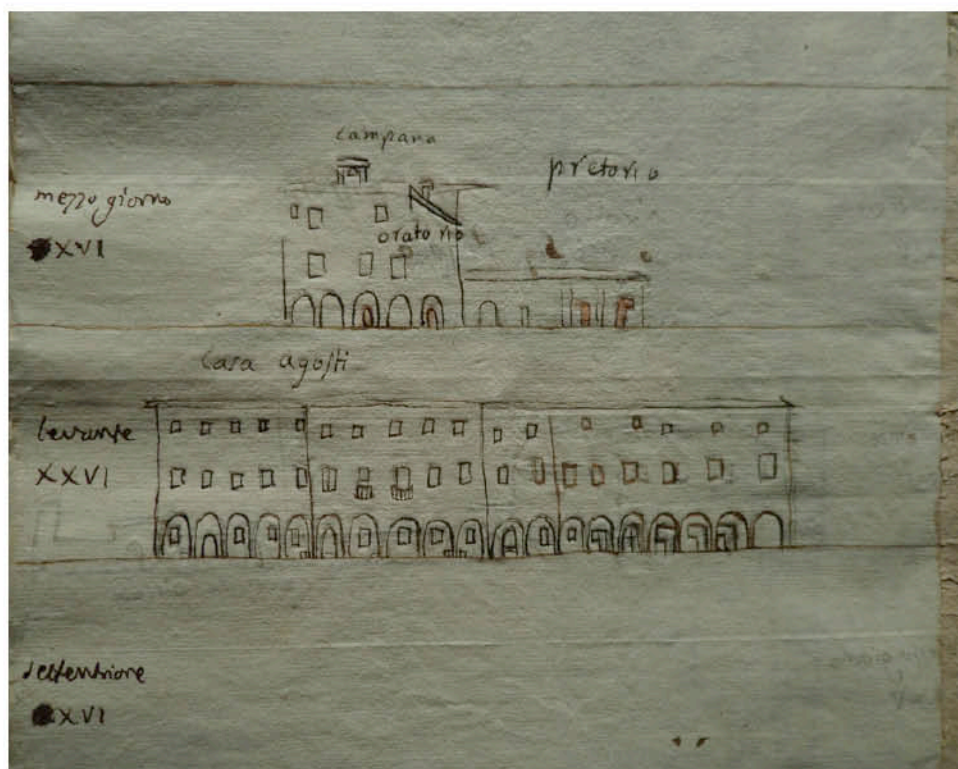 campana
pretorio
mezzo giorno
oratorio
XVI
casa agosti
levante
XXVI
settentrione
XVI